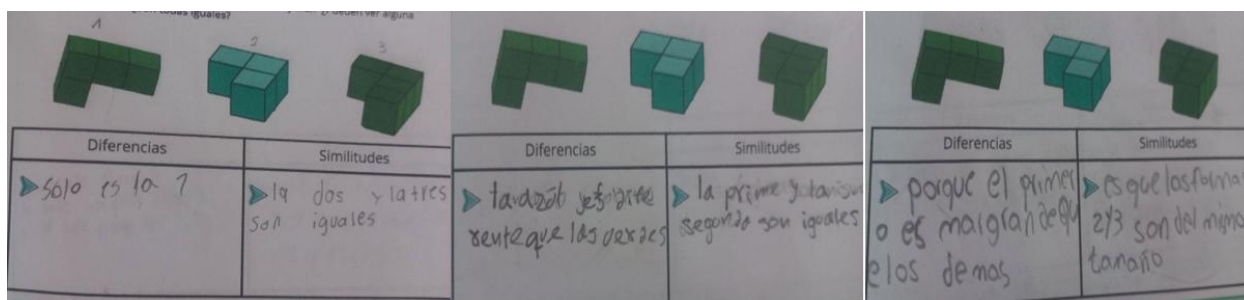 todas iguales?
ver alguna
1
2
3
Diferencias
Similitudes
solo es la 1
la dos y la tres
son iguales
Diferencias
Similitudes
rente que las verdes
la prime
segundo son iguales
Diferencias
Similitudes
porque el primer
o es mas grande qu
e los demas
es que las forma
2 y 3 son del mismo
tamaño